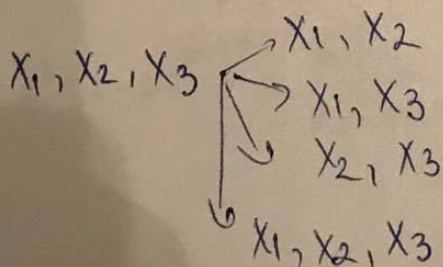 X1, X2
X1, X2, X3
X1, X3
X2, X3
X1, X2, X3